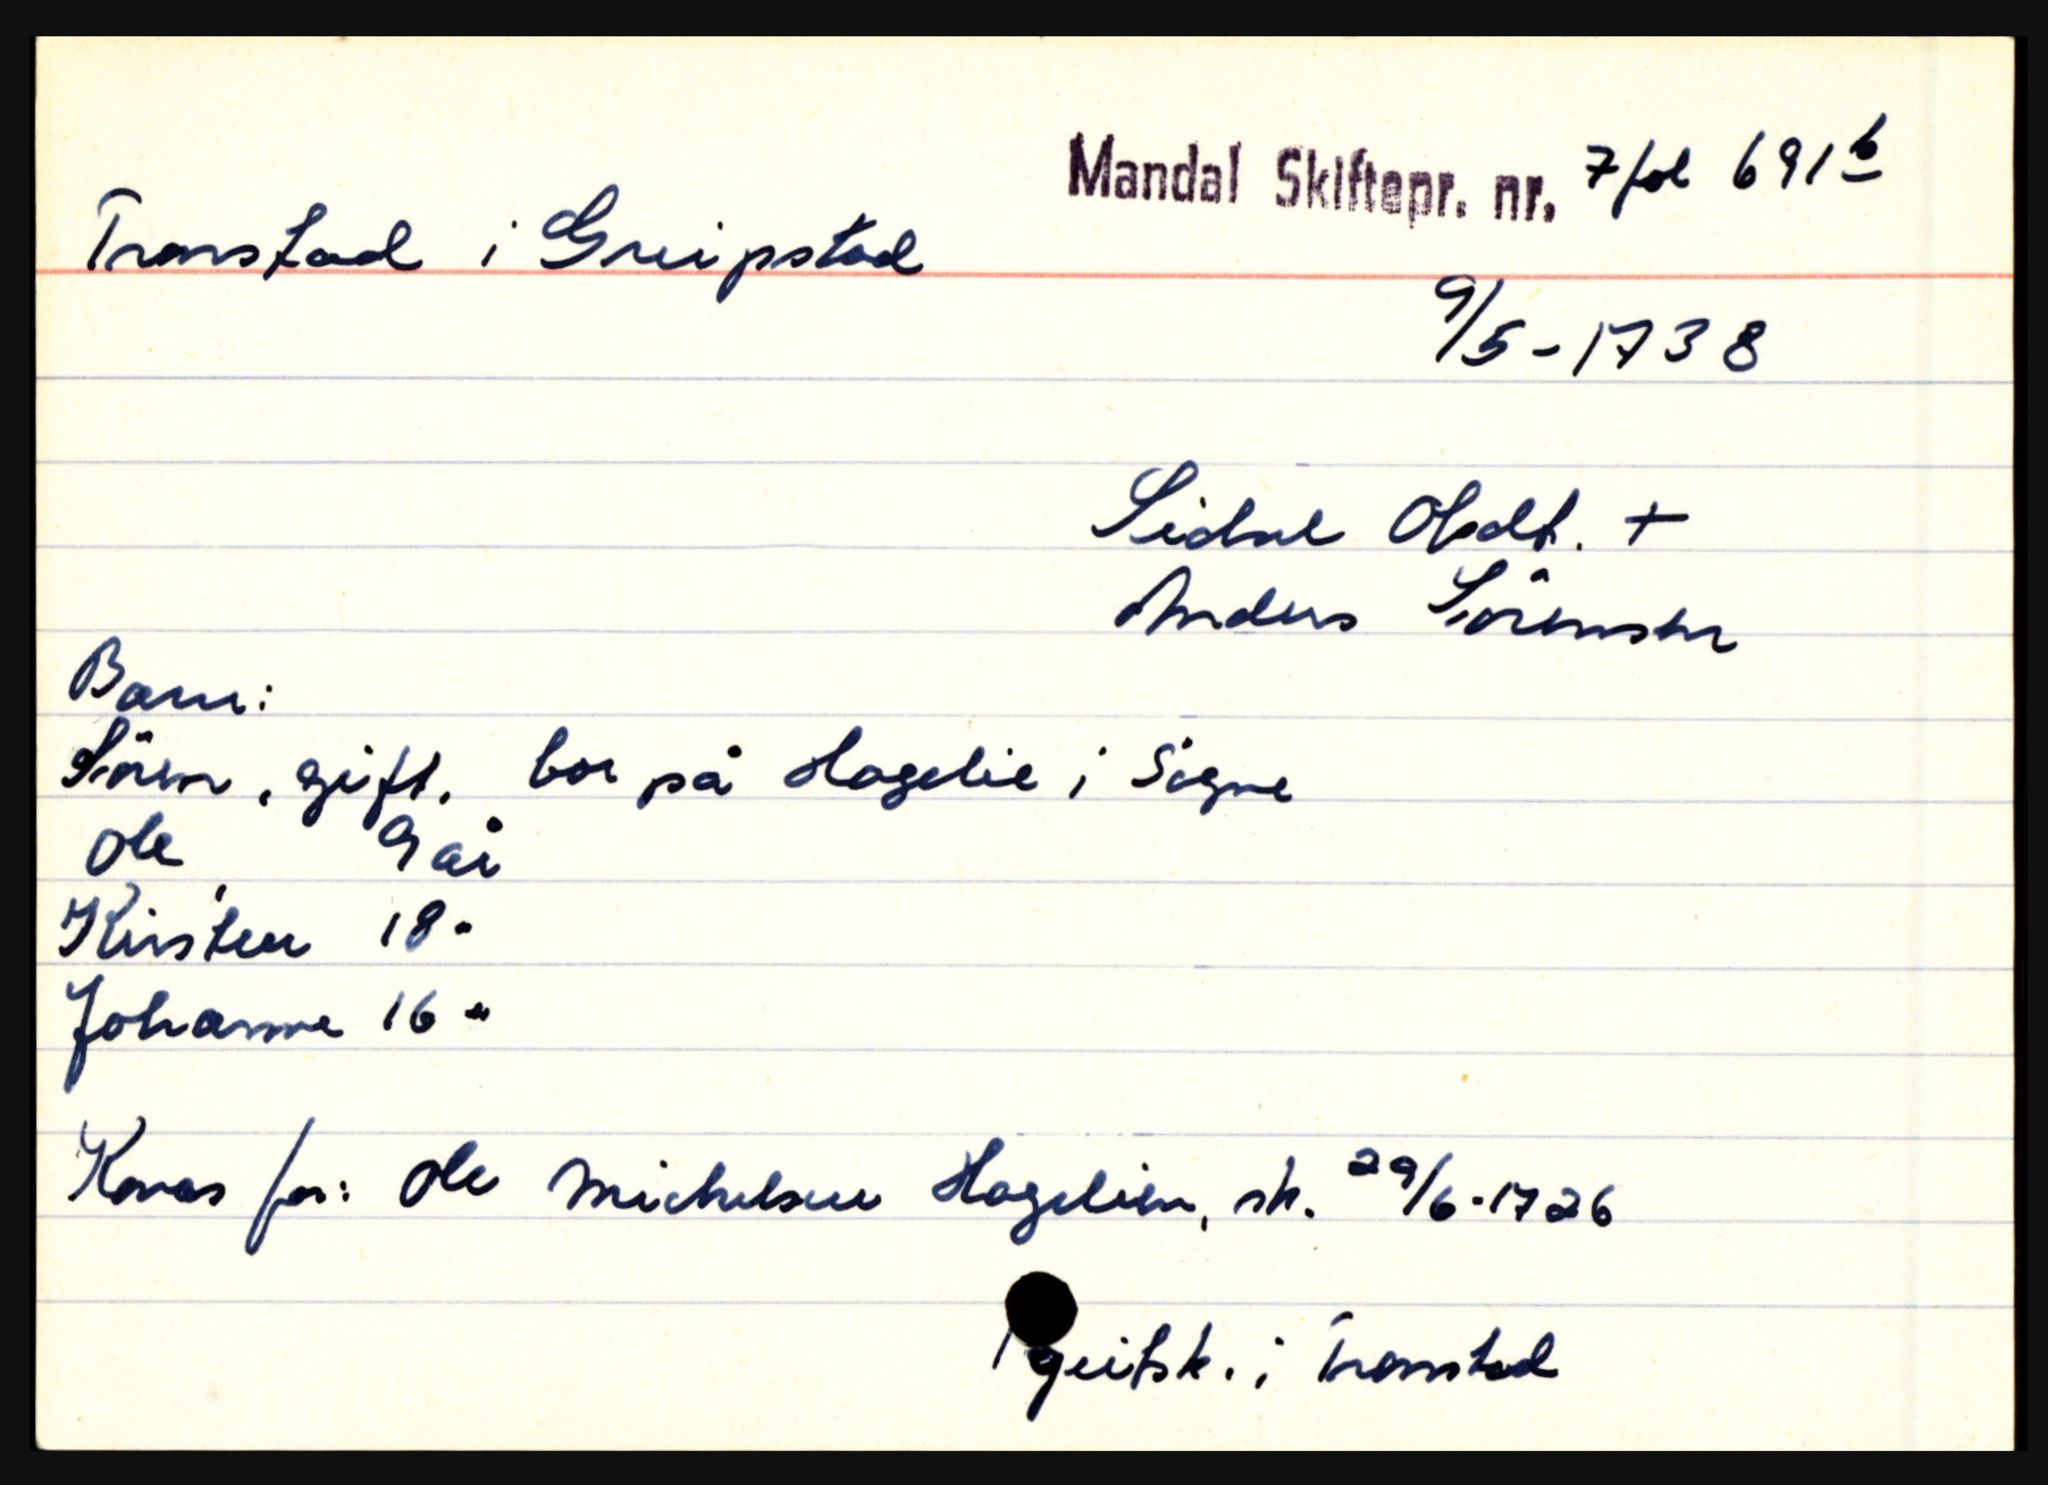 Mandal Skiftepr. nr. 7 fol 691 b
Tronstad i Greipstad
9/5-1738
Sidsel Olsdt. +
Anders Sörensen
Barn:
Sören, gift, bor på Hagelie i Sögne
Ole 9 år
Kirsten 18 "
Johanne 16 "
Konas far: Ole Michelsen Hagelien, sk. 29/6-1726
1 geitsk. i Tronstad